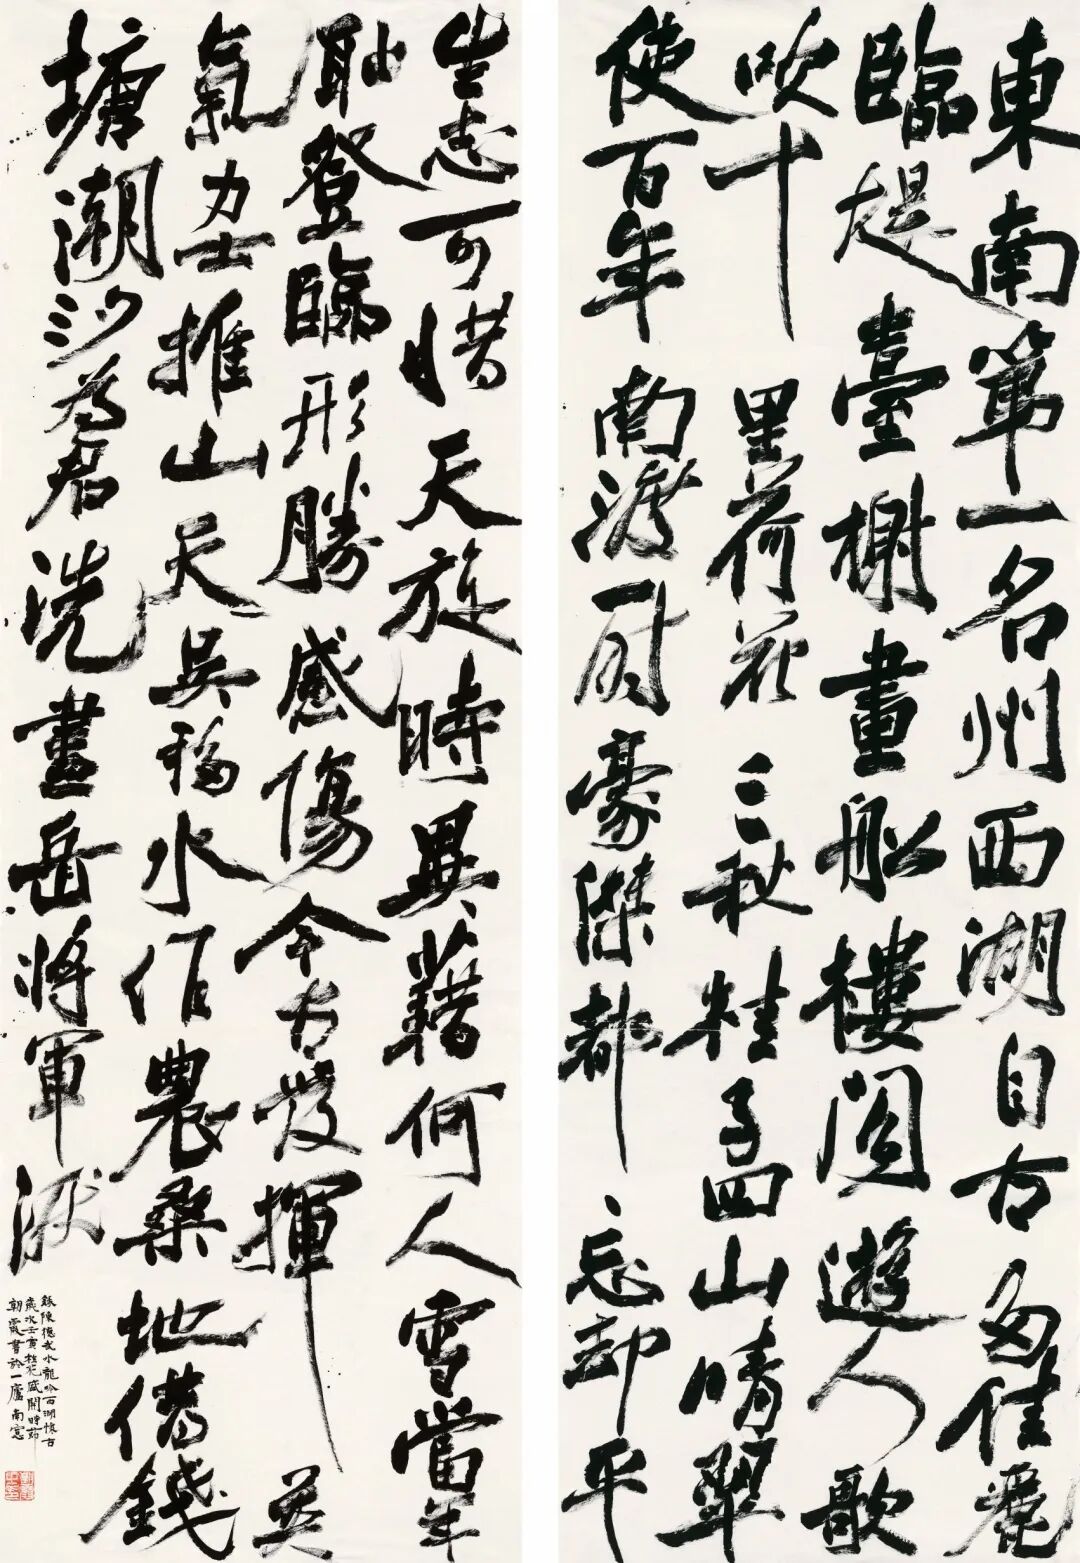 東南第一名州西湖自古多佳麗
臨堤臺榭畫船樓閣遊人歌
吹十里荷花三秋桂子四山晴翠
使百年南渡一时豪傑都忘却平
生志可惜天旋時異藉何人雪當年
耻登臨形勝感傷今古發揮英
氣力士推山天吴移水作農桑地借錢
塘潮汐為君洗盡岳將軍淚
録陳德武水龍吟西湖懷古
歲次壬寅桂花盛開時節
朝霞書於一廬南窓